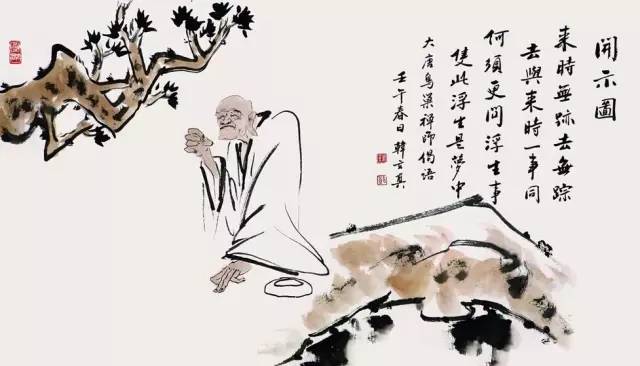 開示圖
来時無跡去無踪
去與来時一事同
何須更問浮生事
隻此浮生是夢中
大唐鳥巢禅師偈語
壬午春日韓